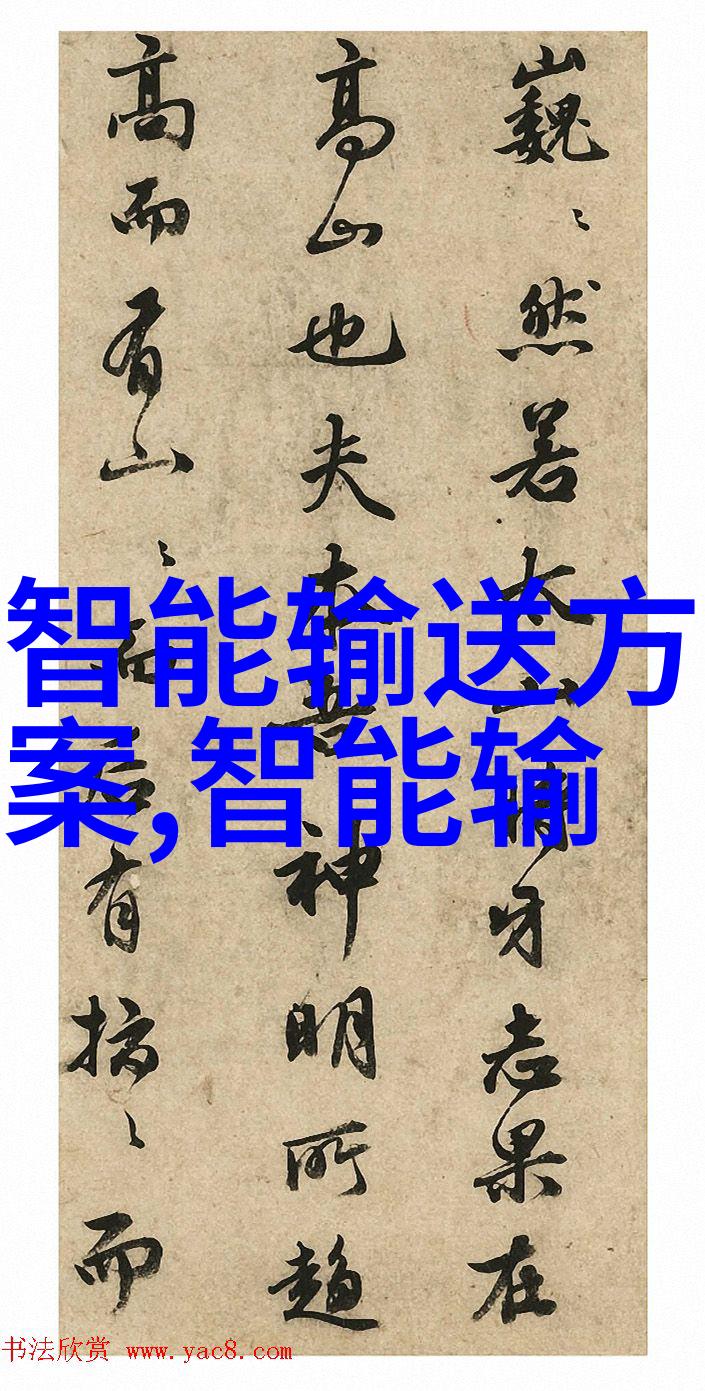 巍〻然若太山時牙志果在
高山也夫神明所趨
高而有山〻而后有〻而
智能输送方
案,智能输
书法欣赏 www.yac8.com